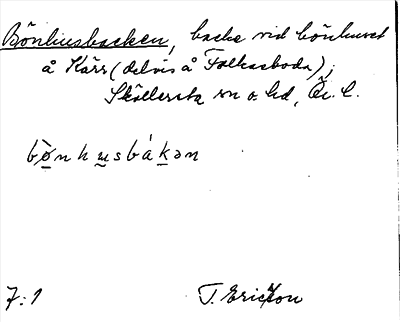 Bönhusbacken, backe vid bönhuset
å Kärr (delvis å Folkaboda),
Sköllersta sn o. hd, Ör. l.
bò̲nhu̲sbák̲ən
7:1 T. Ericsson